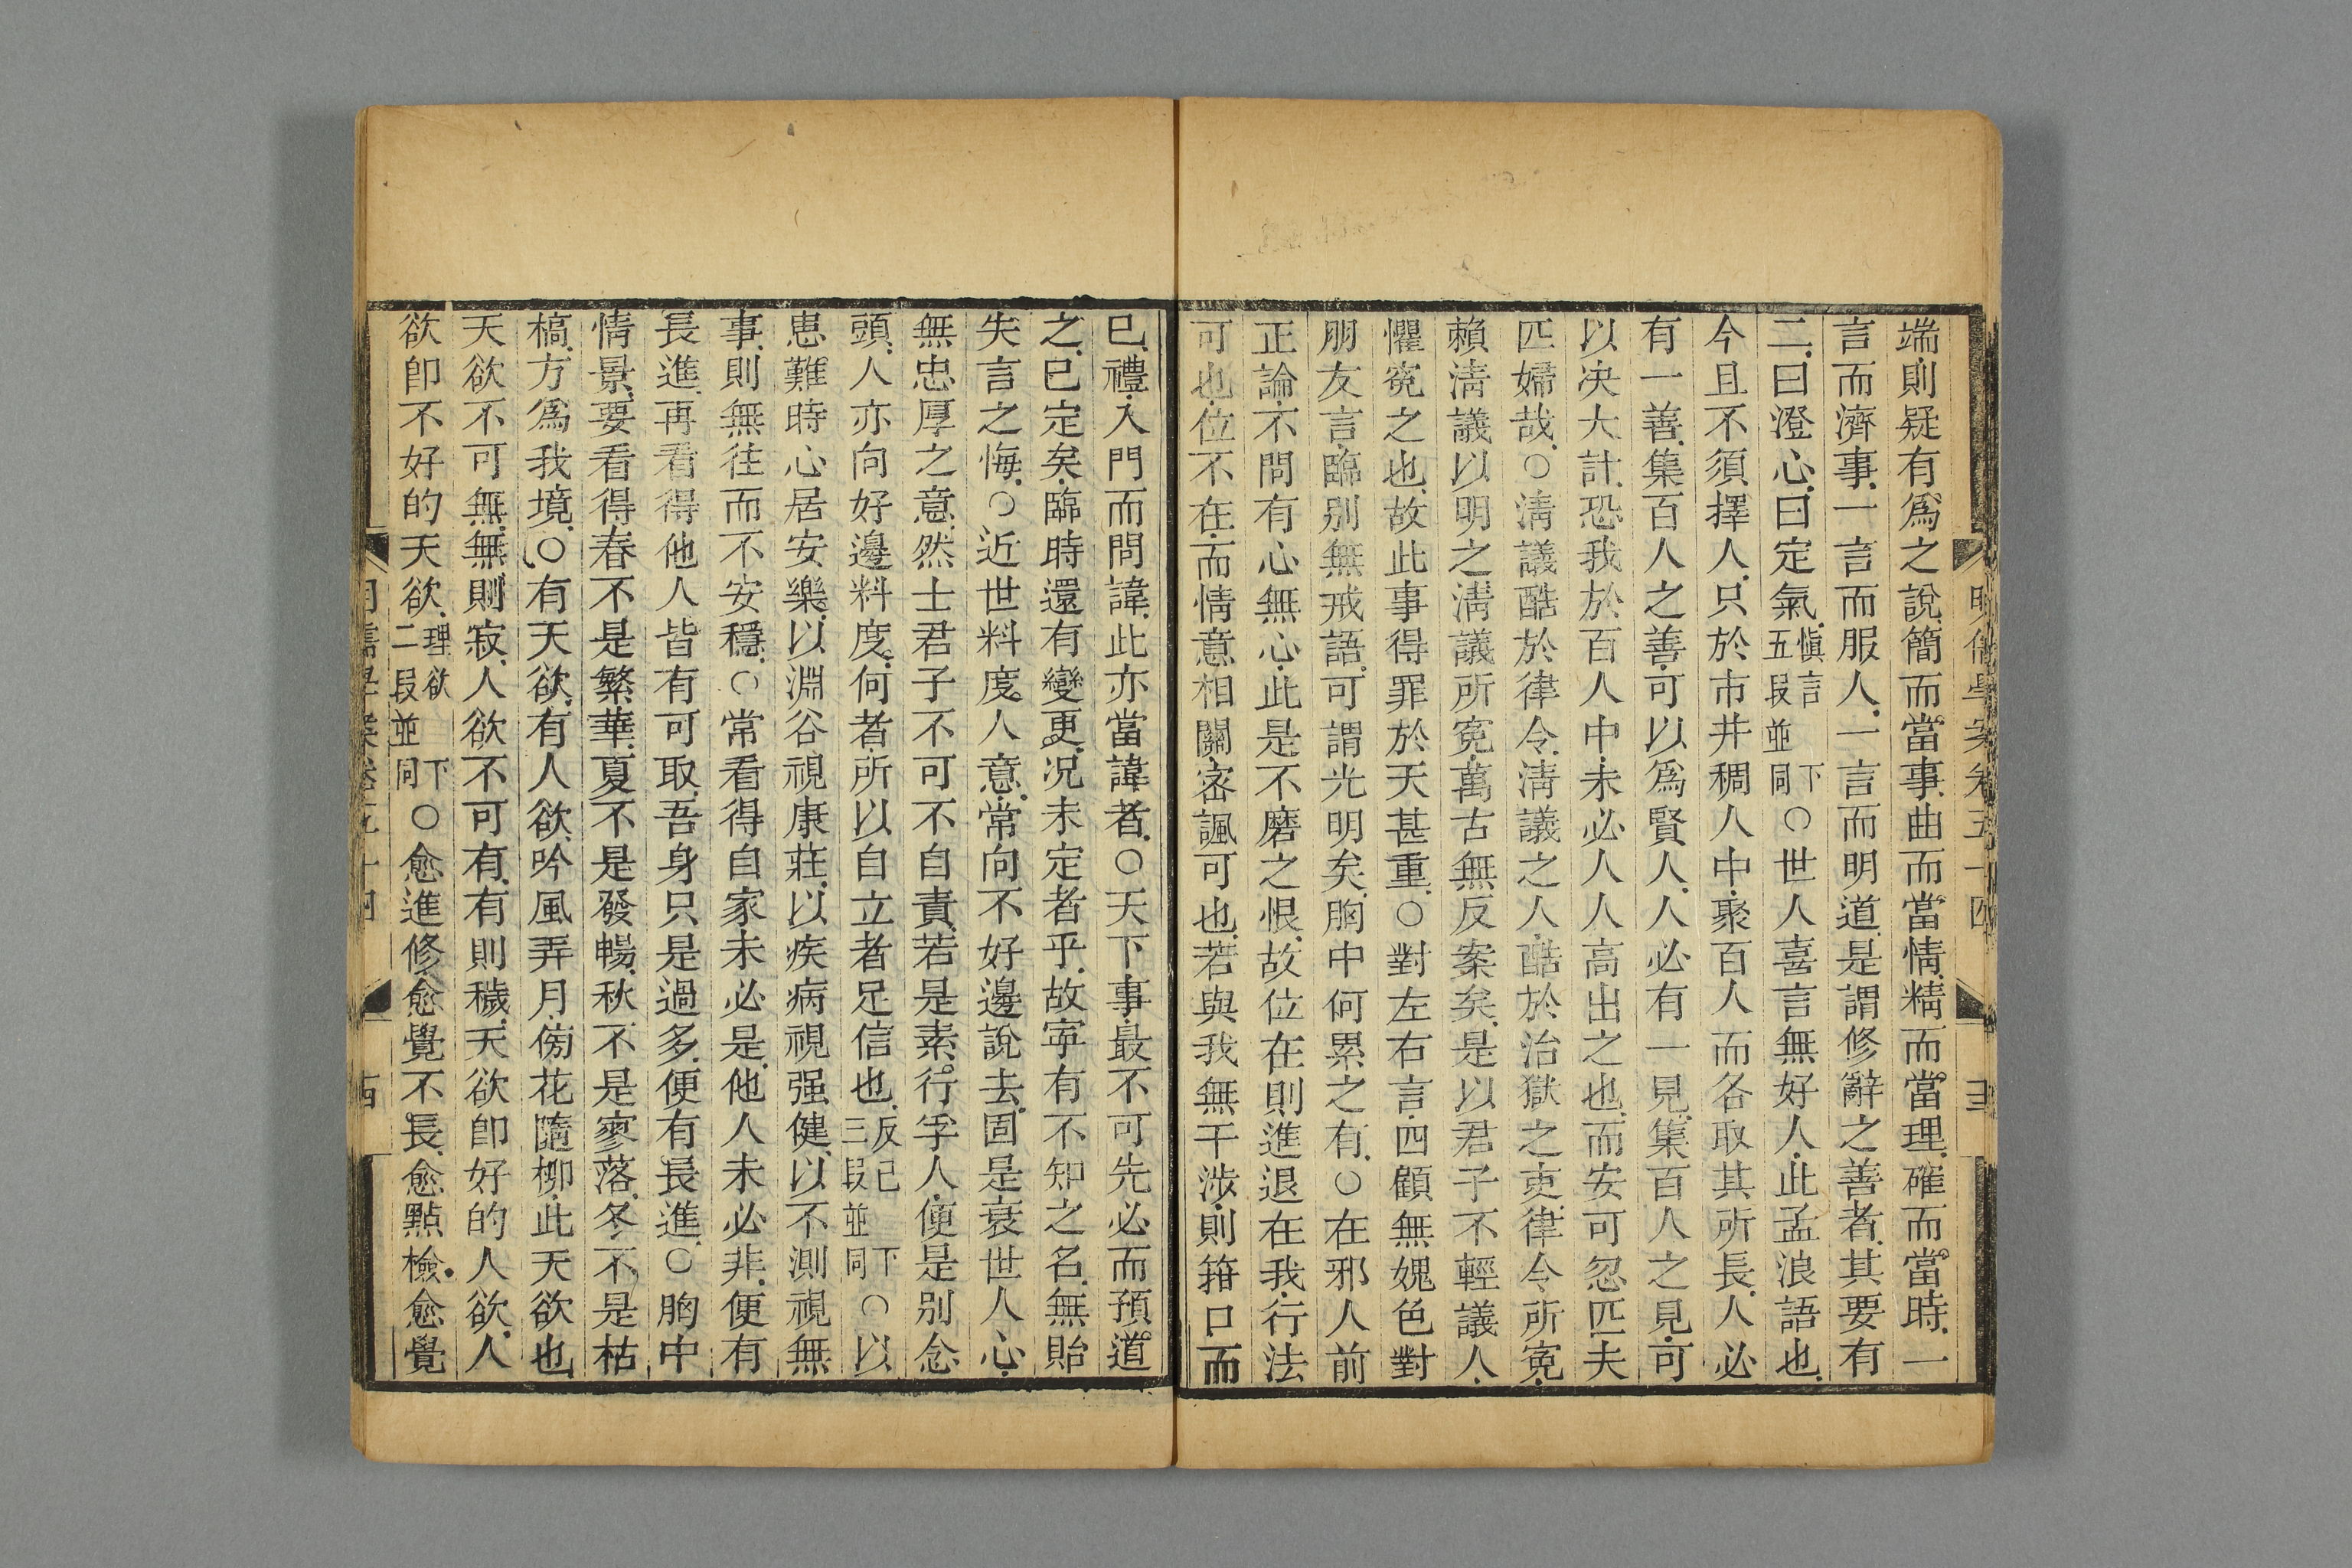 端則疑有爲之說簡而當事曲而當情精而當理確而當時一
言而濟事一言而服人一言而明道是謂修辭之善者其要有
二曰澄心曰定氣愼言五段並下同○世人喜言無好人此孟浪語也
今且不須擇人只於市井稠人中聚百人而各取其所長人必
有一善集百人之善可以爲賢人人必有一見集百人之見可
以决大計恐我於百人中未必人人高出之也而安可忽匹夫
匹婦哉○淸議酷於律令淸議之人酷於治獄之吏律令所寃
賴淸議以明之淸議所寃萬古無反案矣是以君子不輕議人
懼寃之也故此事得罪於天甚重○對左右言四顧無媿色對
朋友言臨別無戒語可謂光明矣胸中何累之有○在邪人前
正論不問有心無心此是不磨之恨故位在則進退在我行法
可也位不在而情意相關密諷可也若與我無干涉則箝口而
已禮入門而問諱此亦當諱者○天下事最不可先必而預道
之已定矣臨時還有變更况未定者乎故寧有不知之名無貽
失言之悔○近世料度人意常向不好邊說去固是衰世人心
無忠厚之意然士君子不可不自責若是素行孚人便是別念
頭人亦向好邊料度何者所以自立者足信也反己三段並下同○以
患難時心居安樂以淵谷視康莊以疾病視强健以不測視無
事則無往而不安穩○常看得自家未必是他人未必非便有
長進再看得他人皆有可取吾身只是過多便有長進○胸中
情景要看得春不是繁華夏不是發暢秋不是寥落冬不是枯
槁方爲我境○有天欲有人欲吟風弄月傍花隨柳此天欲也
天欲不可無無則寂人欲不可有有則穢天欲卽好的人欲人
欲卽不好的天欲理欲二段並下同○愈進修愈覺不長愈點檢愈覺